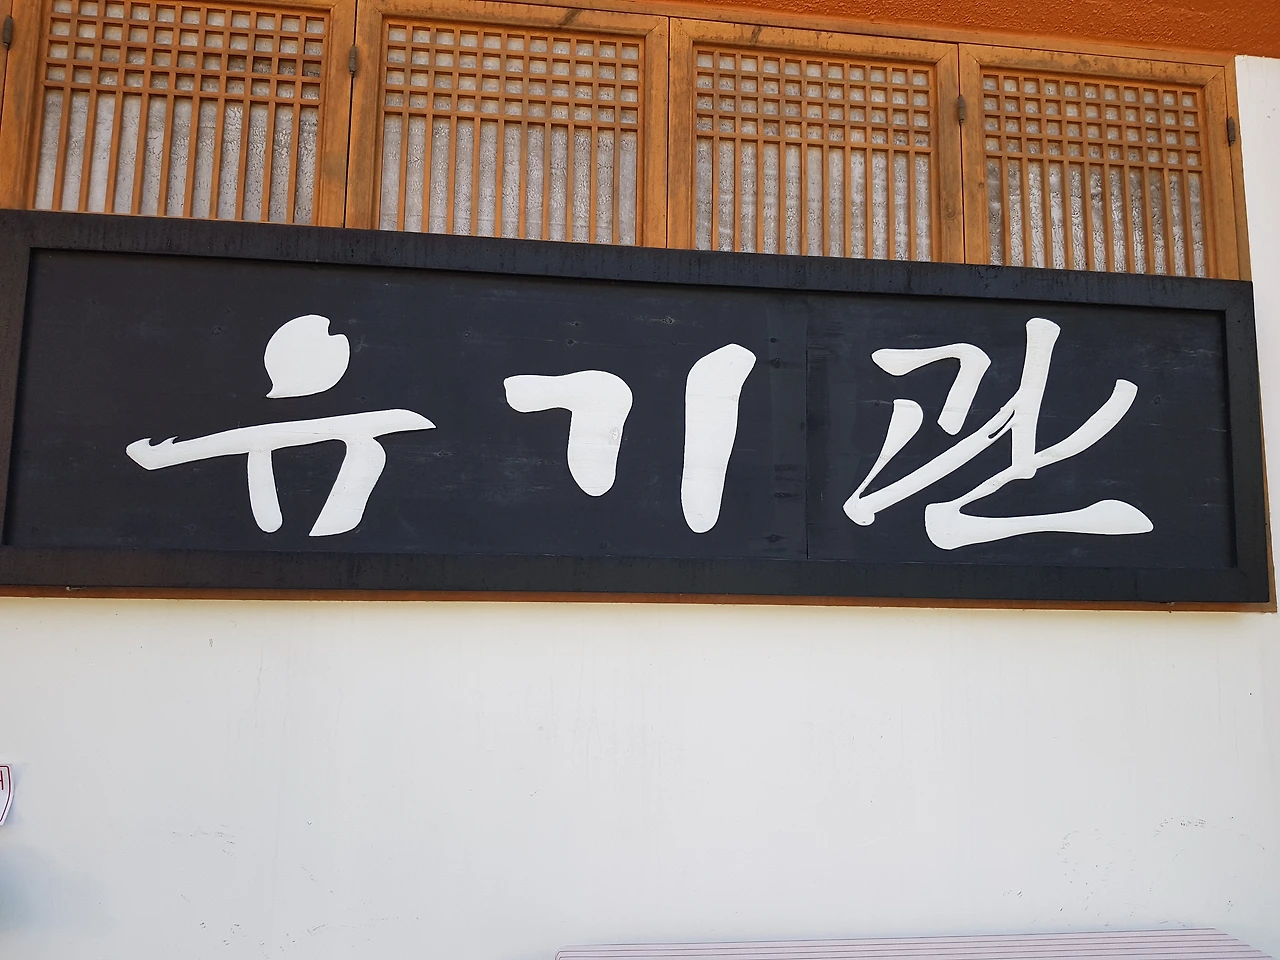 유기관